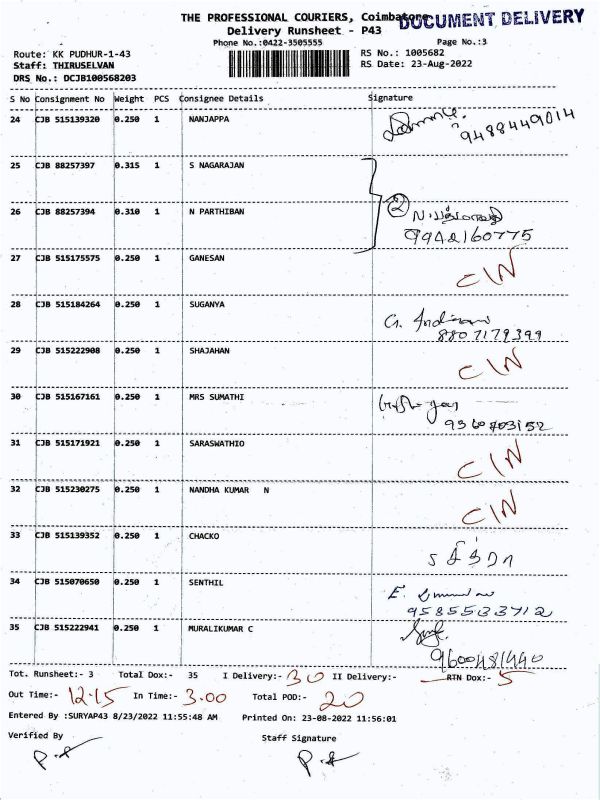 THE PROFESSIONAL COURIERS, Coimbatore
DOCUMENT DELIVERY
Delivery Runsheet - P43
Phone No.:0422-3505555
Page No.:3
Route: KK PUDHUR-1-43
RS No.: 1005682
Staff: THIRUSELVAN
RS Date: 23-Aug-2022
DRS No.: DCJB100568203
S No Consignment No Weight PCS Consignee Details Signature
24 CJB 515139320 0.250 1 NANJAPPA
9488449014
25 CJB 88257397 0.315 1 S NAGARAJAN
26 CJB 88257394 0.310 1 N PARTHIBAN 2
9942160775
27 CJB 515175575 0.250 1 GANESAN CIN
28 CJB 515184264 0.250 1 SUGANYA G.
8807179399
29 CJB 515222908 0.250 1 SHAJAHAN CIN
30 CJB 515167161 0.250 1 MRS SUMATHI
9360703152
31 CJB 515171921 0.250 1 SARASWATHIO CIN
32 CJB 515230275 0.250 1 NANDHA KUMAR N CIN
33 CJB 515139352 0.250 1 CHACKO
34 CJB 515070650 0.250 1 SENTHIL E.
9585533712
35 CJB 515222941 0.250 1 MURALIKUMAR C
9600481440
Tot. Runsheet:- 3 Total Dox:- 35 I Delivery:- 30 II Delivery:- RTN Dox:- 5
Out Time:- 12.15 In Time:- 3.00 Total POD:- 20
Entered By :SURYAP43 8/23/2022 11:55:48 AM Printed On: 23-08-2022 11:56:01
Verified By Staff Signature